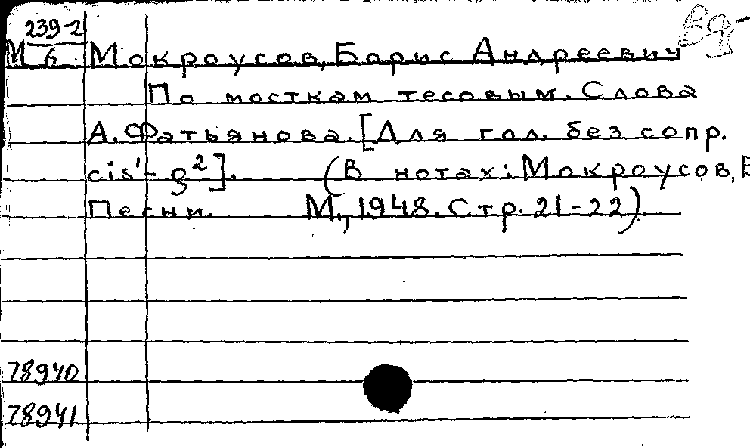 239-2
М 6 Мокроусов, Борис Андреевич
По мосткам тесовым. Слова
А. Фатьянова. [Для гол. без сопр.
cis¹- g²]. (В нотах: Мокроусов, Б
Песни. М., 1948. Стр. 21-22)
78940
78941